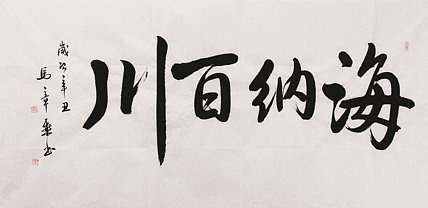 海纳百川
岁次辛丑
马章乘书